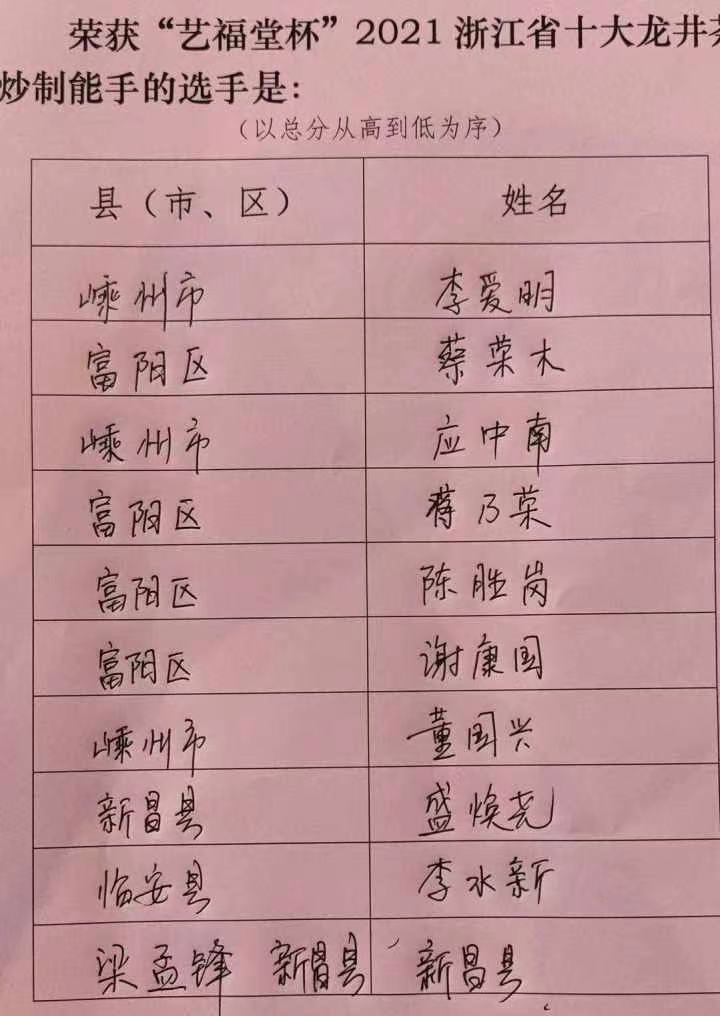 荣获“艺福堂杯”2021浙江省十大龙井茶
炒制能手的选手是：
（以总分从高到低为序）
县（市、区） 姓名
嵊州市 李爱明
富阳区 蔡荣木
嵊州市 应中南
富阳区 蒋乃荣
富阳区 陈胜岗
富阳区 谢康国
嵊州市 董国兴
新昌县 盛焕尧
临安县 李水新
梁孟锋 新昌县 新昌县